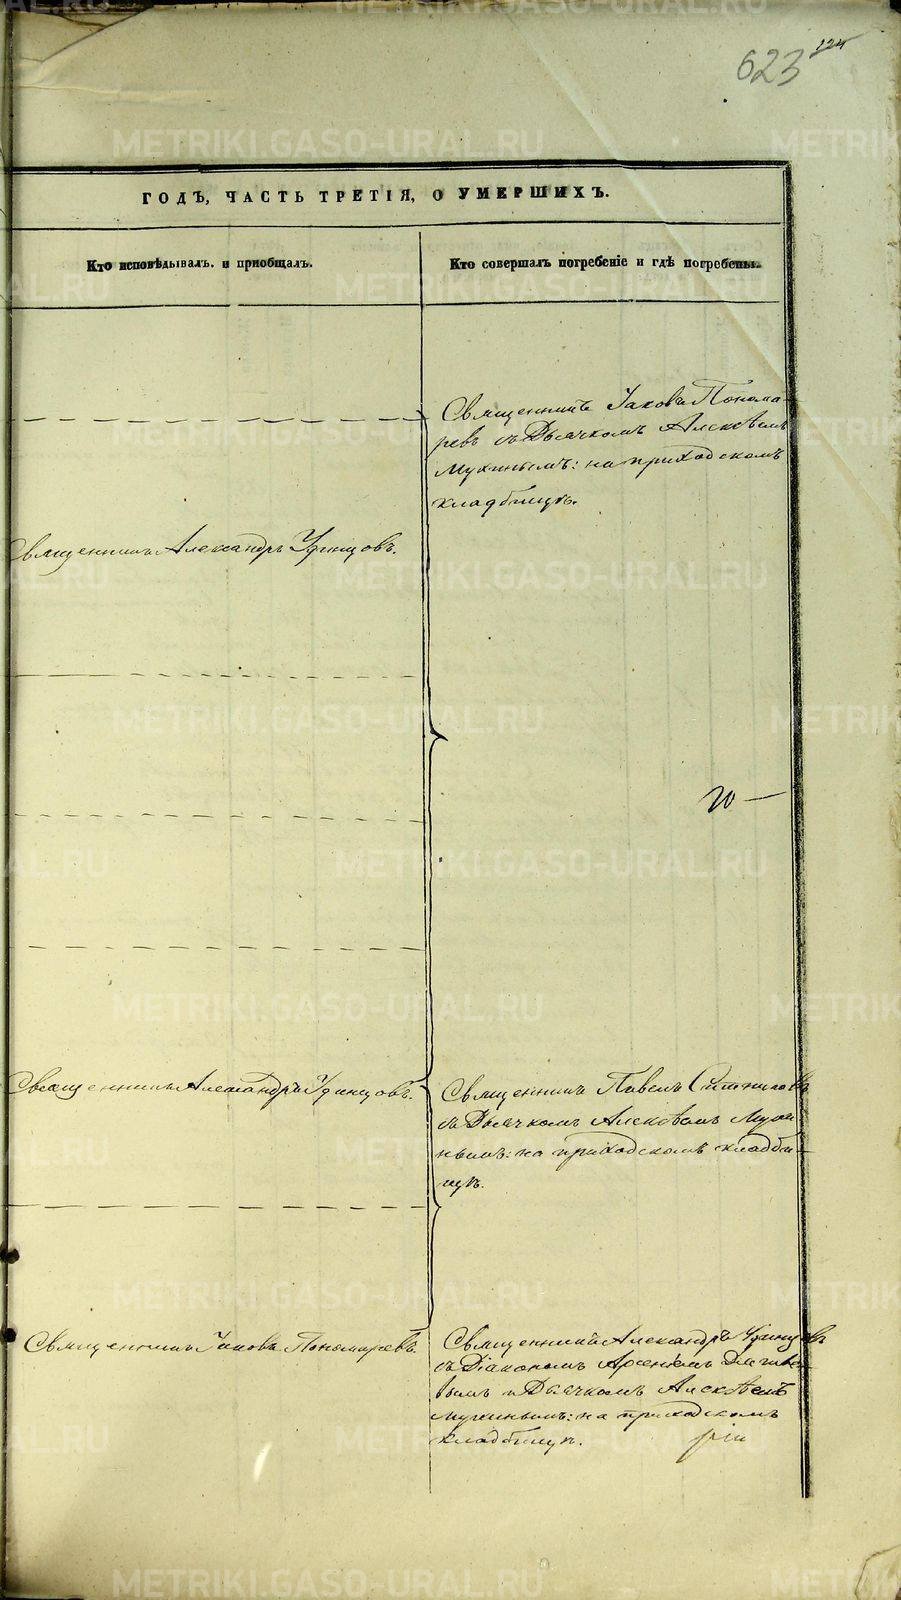 623
224
ГОДЪ, ЧАСТЬ ТРЕТІЯ, О УМЕРШИХЪ.
Кто исповѣдывалъ и приобщалъ.
Кто совершалъ погребеніе и гдѣ погребены.
Священникъ Іаковъ Понома-
ревъ съ Дьячкомъ Алексѣемъ
Мухинымъ: на приходскомъ
кладбищѣ.
Священникъ Александръ Удинцовъ.
Священникъ Александръ Удинцовъ.
Священникъ Павелъ
съ Дьячкомъ Алексѣемъ Мухи-
нымъ: на приходскомъ кладби-
щѣ.
Священникъ Іаковъ Пономаревъ.
Священникъ Александръ Удинцовъ
съ Діакономъ Арсеніемъ
вымъ и Дьячкомъ Алексѣемъ
Мухинымъ: на приходскомъ
кладбищѣ.
METRIKI.GASO-URAL.RU